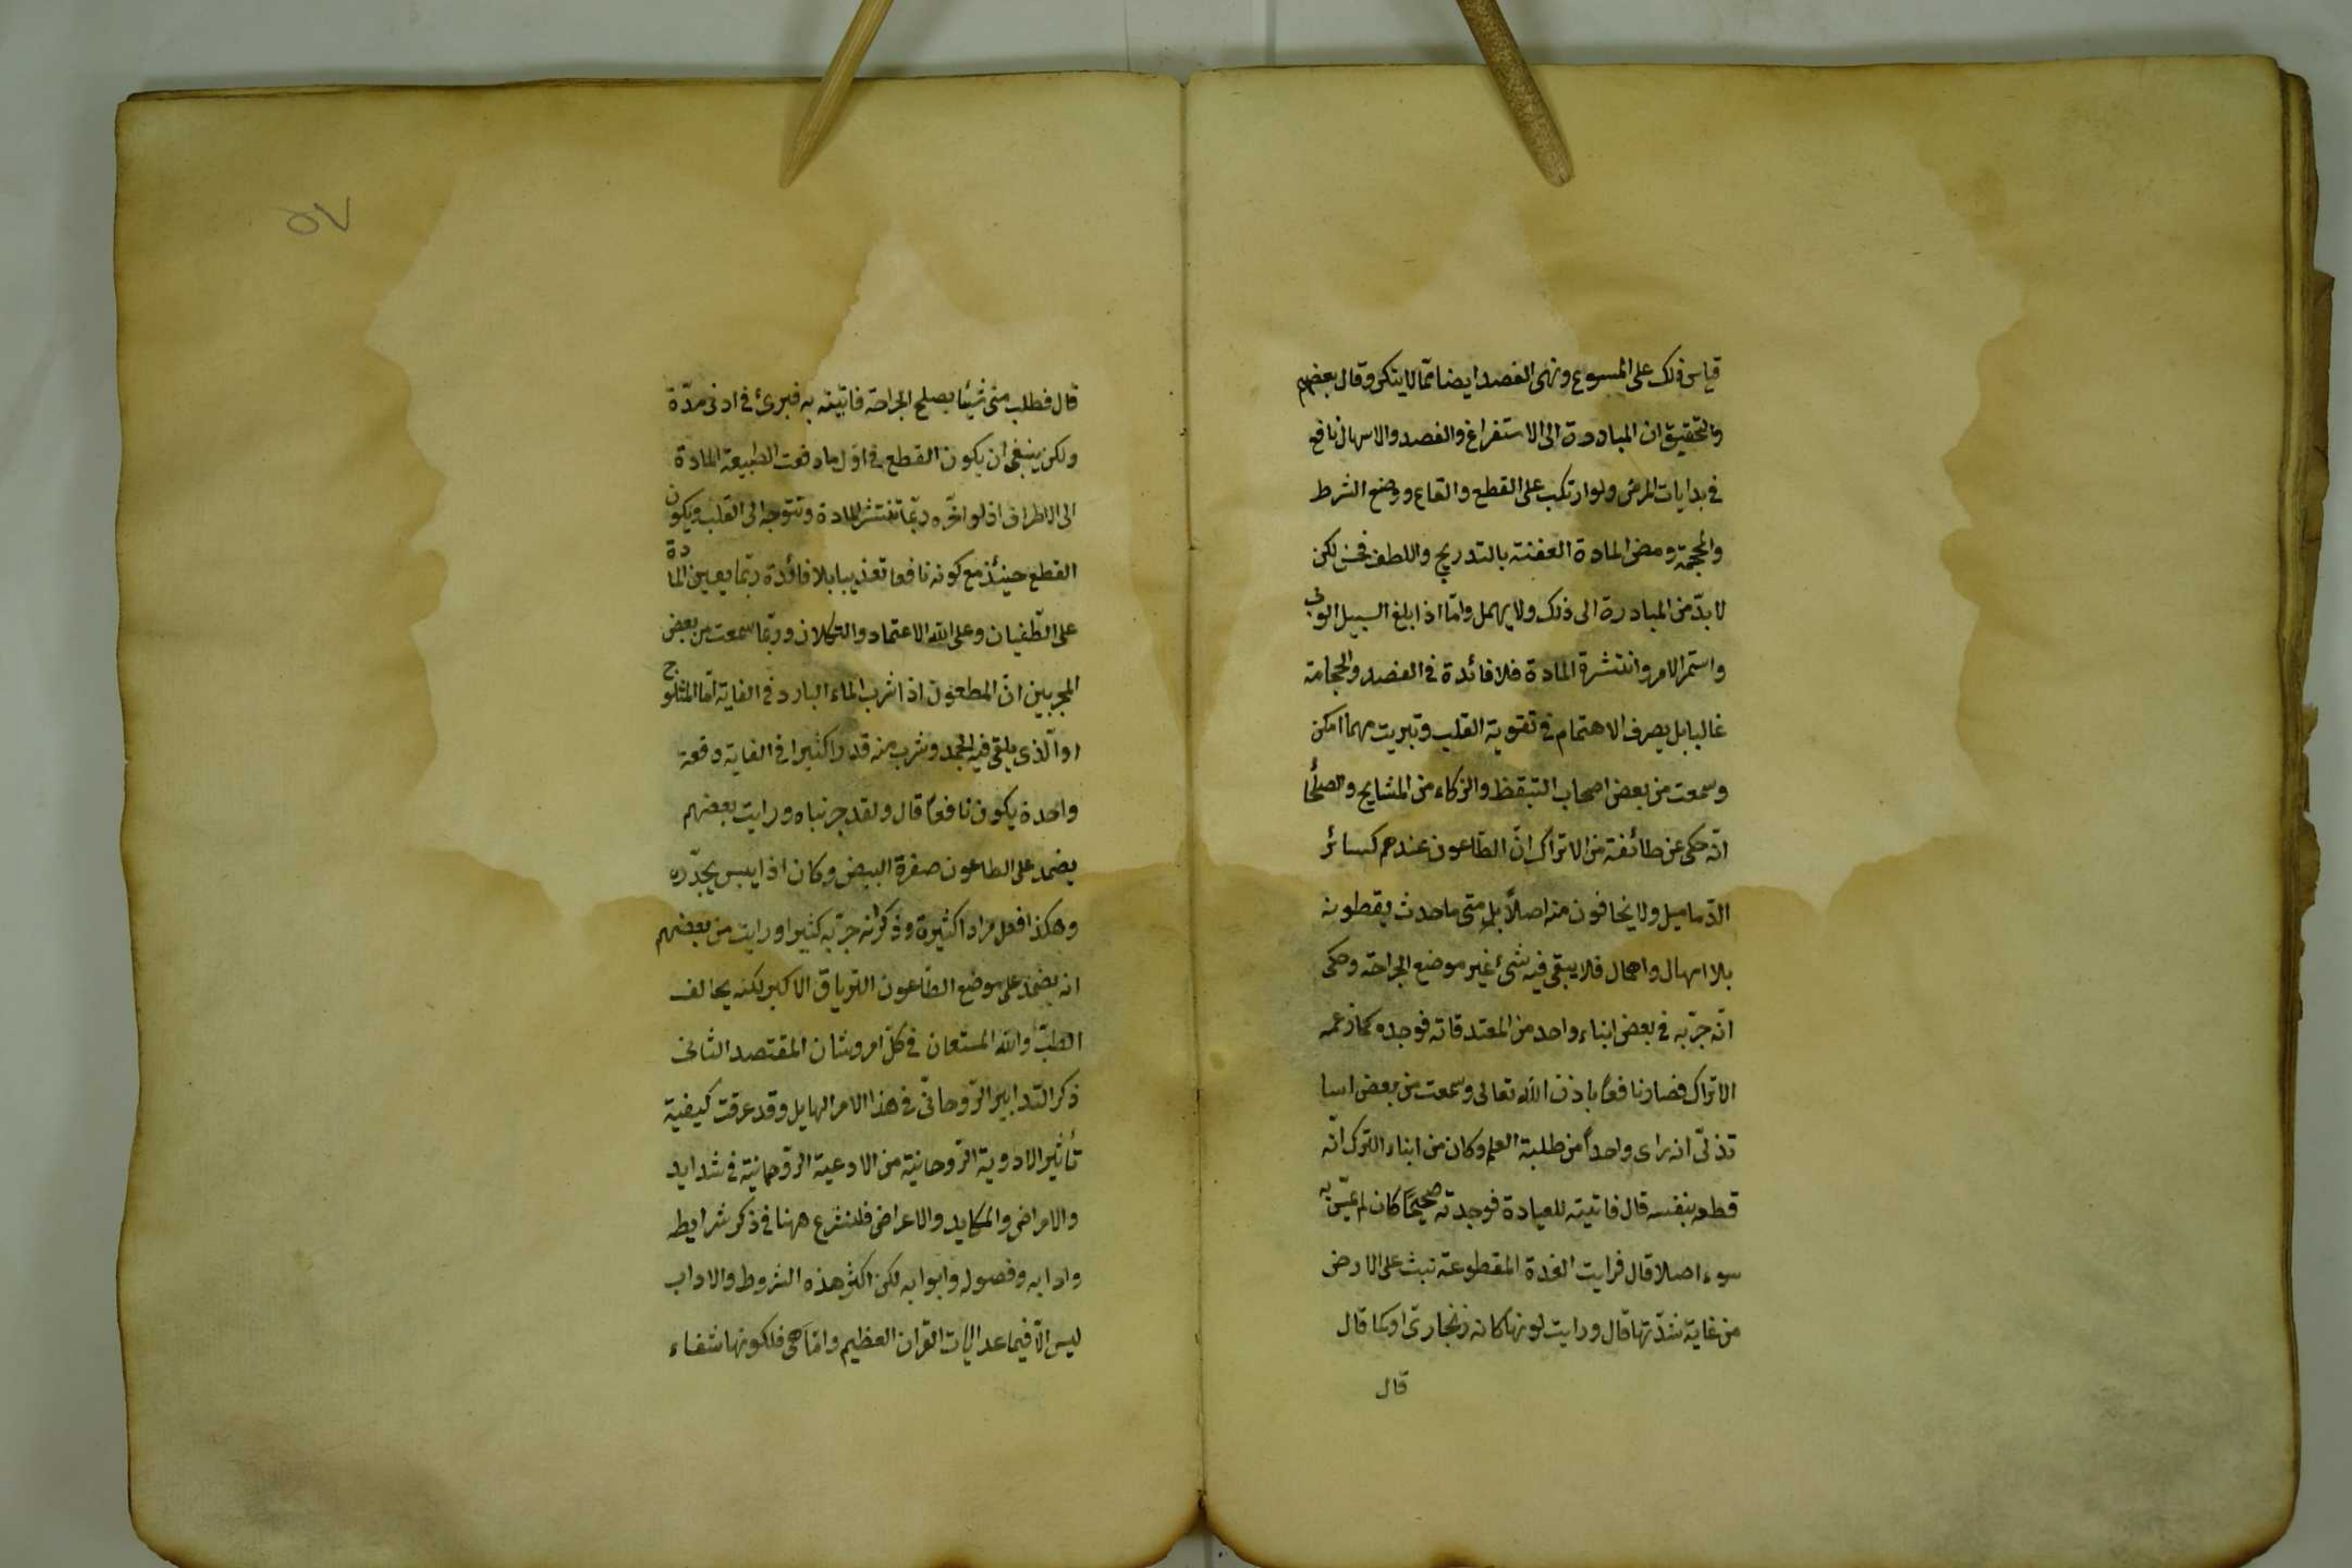 قياس ذلك على الملسوع ونهى الفصد ايضا ممّا لا ينكر وقال بعضهم
والتحقيق ان المبادرة الى الاستفراغ والفصد والاسهال نافع
في بدايات المرض ولو ارتكب على القطع والقاع ووضع الشرط
والمحجمة ومص المادة العفنة بالتدريج واللطف فحسن لكن
لا بدّ من المبادرة الى ذلك ولا يهمل وامّا اذا بلغ السيل الربى
واستمر الامر وانتشرة المادة فلا فائدة في الفصد والحجامة
غالبا بل يصرف الاهتمام في تقوية القلب وتبريت مهما امكن
وسمعت من بعض اصحاب التيقظ والزكاء من المشايخ والصلحأ
انّه حكى عن طائفة من الاتراك انّ الطّاعون عندهم كسائر
الدّماميل ولا يخافون منه اصلاً بل متى ما حدث يقطعونه
بلا امهال واهمال فلا يبقى فيه شئ غير موضع الجراحة وحكى
انّه جرّبه في بعض ابناء واحد من المعتد قاته فوجده كما زعمه
الاتراك فصار نافعاً باذن الله تعالى وسمعت من بعض اسا
تذتى انه راى واحداً من طلبة العلم وكان من ابناء الترك انّه
قطعه بنفسه قال فاتيته للعيادة فوجدته صحيحًا كان لم يمسّ به
سوء اصلا قال فرايت الغدة المقطوعة تبث على الارض
من غاية شدّتها قال ورايت لونها كانه زنجارى او كما قال
قال
٥٧
قال فطلب منى شيئا يصلح الجراحة فاتيته به فبرئ في ادنى مدّة
ولكن ينبغى ان يكون القطع في اوّل ما دفعت الطبيعة المادة
الى الاطراف اذ لو اخّره ربّما تنتشر المادة وتتوجه الى القلب ويكون
القطع حينئذ مع كونه نافعا تعذيبا بلا فائدة ربّما يعين المادة
على الطّغيان وعلى الله الاعتماد والتوكلان وربّما سمعت من بعض
المجربين انّ المطعون اذا شرب الماء البارد في الغاية امّا المثلوج
او الّذى يلقى فيه الجمد وشرب منه قدرا كثيرا في الغاية دفعة
واحدة يكون نافعاً قال ولقد جربناه ورايت بعضهم
يضمد على الطاعون صفرة البيض وكان اذا يبس يجدّده
وهكذا فعل مرارا كثيرة وذكر انه جرّبه كثيرا ورايت من بعضهم
انه يضمّد على موضع الطّاعون الترياق الاكبر لكنه يخالف
الطبّ والله المستعان في كلّ امر وشان المقتصد الثانى
ذكر التدابير الرّوحانّى في هذا الامر الهايل وقد عرفت كيفية
تأثير الادوية الرّوحانيّة من الادعية الرّوحانيّة في شدايد
والامراض والمكايد والاعراض فلنشرع ههنا في ذكر شرايطه
وادابه وفصوله وابوابه لكن اكثر هذه الشروط والاداب
ليس الّا فيما عدا ايات القران العظيم وامّا هى فلكونها شفاء